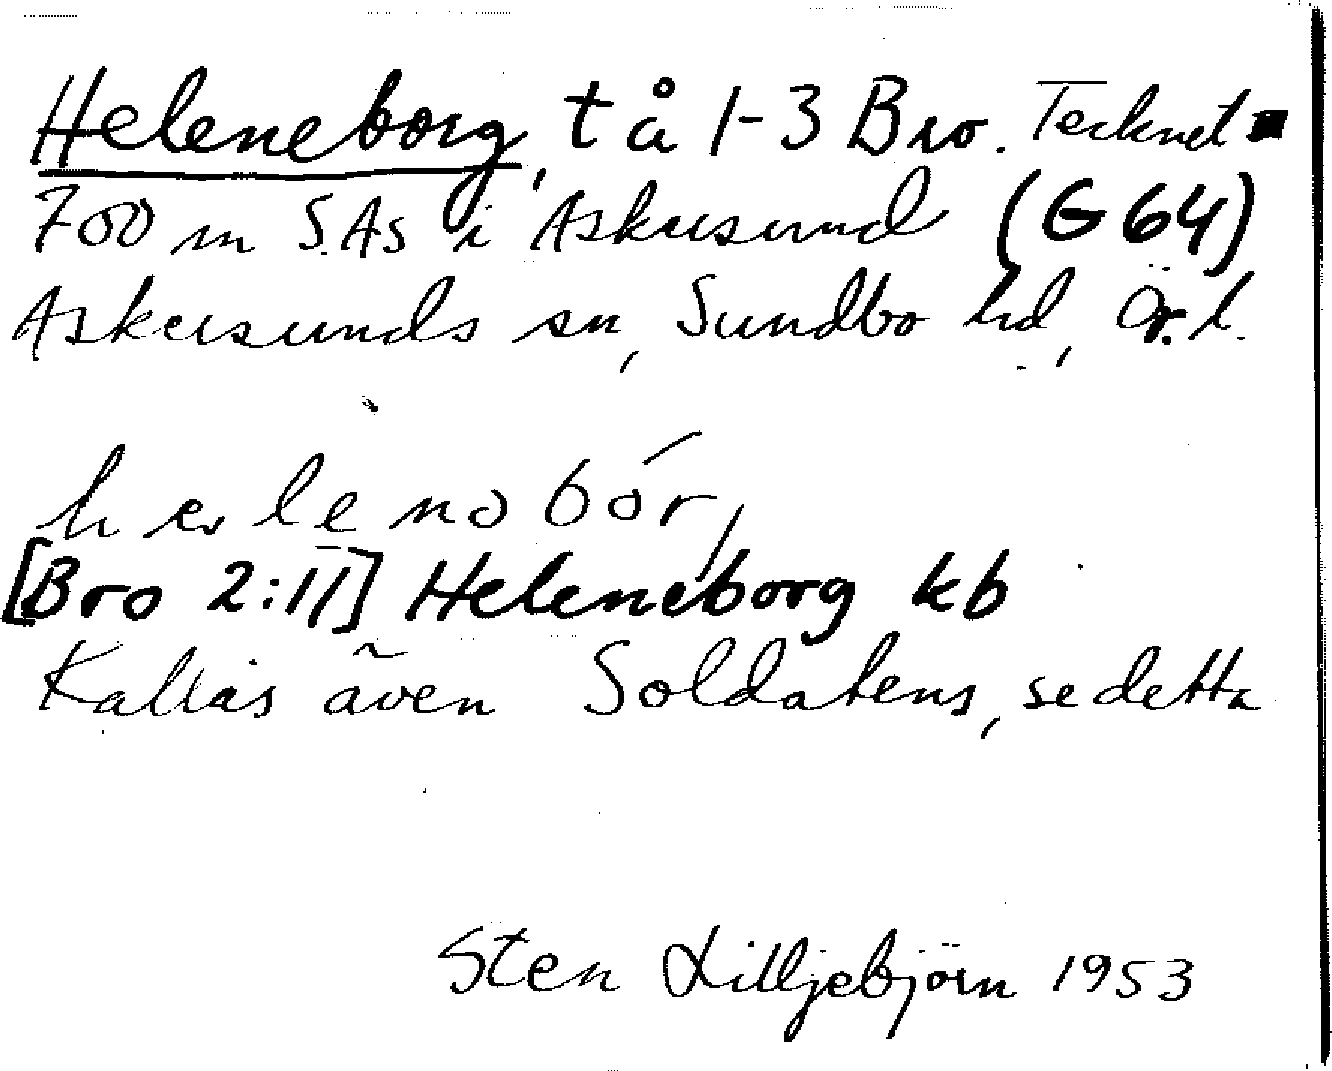 Heleneborg, t å 1-3 Bro. Tecknet ▪
700 m S. As i Askersund (G 64)
Askersunds sn, Sundbo hd, Ör. l.
[Bro 2:11] Heleneborg kb
Kallas även Soldatens, se detta
Sten Lilljebjörn 1953